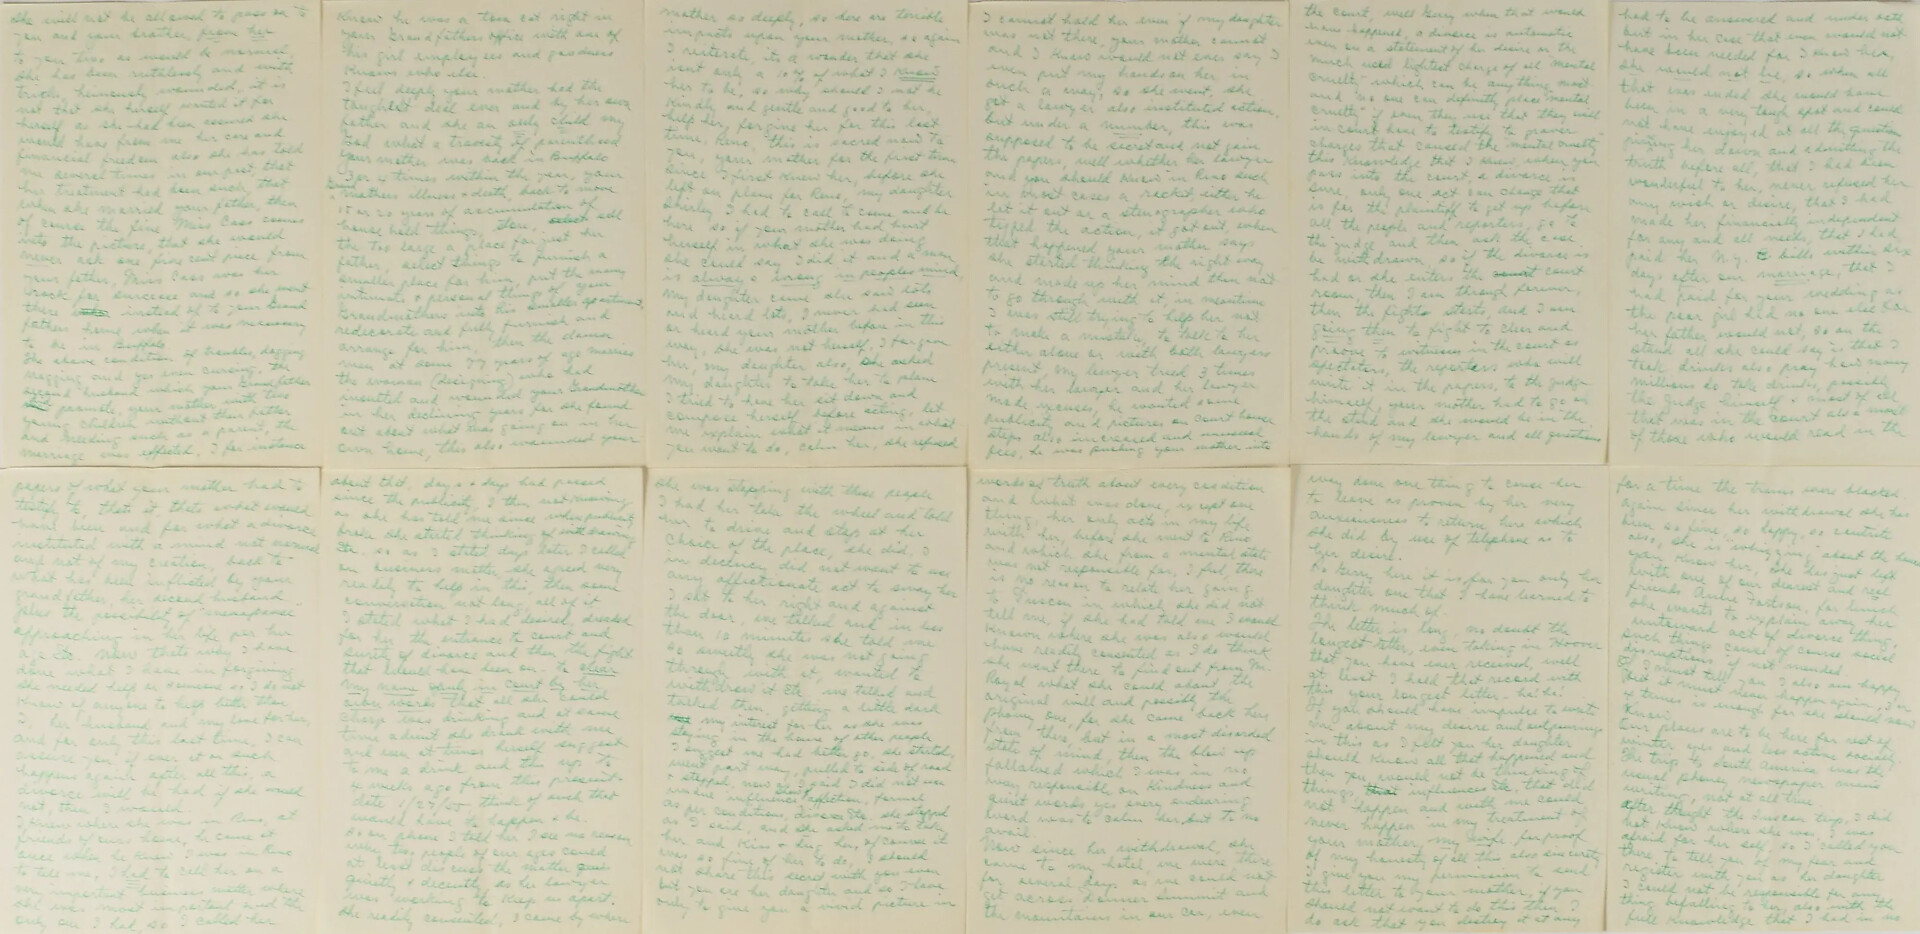 she will not be allowed to pass on to
you and your brother from her
to you two as would be normal
she has been ruthlessly and with
tricks, heinously wounded, it is
not that she herself wanted it for
herself as she had been assured she
would have from me her care and
financial freedom also she has told
me several times in our past, that
her treatment had been such, that
when she married your father, then
of course the fine Miss Cass comes
into the picture, that she would
never ask one five cent piece from
your father, Miss Cass was her
track for success and so she went
there instead of to your Grand
fathers home when it was necessary
to be in Buffalo
The above condition of troubles, dogging
nagging and yes even cursing. The
second husband which your Grandfather
promote, your mother with two
young children without their father
and breeding such as a parent, the
marriage was effected. I for instance
know he was a tom cat right in
your Grandfathers office with one of
his girl employees and goodness
knows who else.
I feel deeply your mother had the
toughest deal ever and by her own
father and she an only child my
God what a travesty of parenthood
your mother was back in Buffalo
for 4 times within the year, your
Grand mothers illness & death, back to move
15 or 20 years of accumulation of
house hold things, store, sell
the too large a place for just her
father, select things to furnish a
smaller place for him, put the many
intimate & personal things of your
Grandmothers into this smaller apartment
redecorate and fully furnish and
arrange for him, then the
men at some 77 years of age marries
the woman (designing) who had
insulted and wounded your Grandmother
in her declining years, for she found
out about what was going on in her
own home, this also wounded your
mother as deeply, so here are terrible
impacts upon your mother, so again
I reiterate, its a wonder that she
isnt only a 10% of what I know
her to be, so why should I not be
kindly and gentle and good to her,
help her, forgive her for this last
time. Reno, this is sacred now to
you, your mother for the first time
since I first knew her, before she
left on plane for Reno, my daughter
Shirley I had to call to come and be
here so if your mother had hurt
herself in what she was doing
she could say I did it and a man
is always wrong in peoples mind,
my daughter came she said lots
and heard lots, I never had seen
or heard your mother before in this
way, she was not herself, I forgave
her, my daughter also, she asked
my daughter to take her to plane
I tried to have her sit down and
compose herself, before acting, let
me explain what it means in what
you want to do, calm her, she refused
I cannot hold her even if my daughter
was not there, your mother cannot
and I know would not ever say I
even put my hands on her in
such a way, so she went, she
got a lawyer also instituted action,
but under a number, this was
supposed to be secret and not gain
the papers, well whether her lawyer
and you should know in Reno such
in most cases a racket, either he
let it out or a stenographer who
tipped the action, it got out, when
that happened, your mother says
she started thinking the right way
and made up her mind then not
to go through with it, in meantime
I was still trying to help her not
to make a mistake, to talk to her
either alone or with both lawyers
present, my lawyer tried 3 times
with her lawyer and her lawyer
made excuses, he wanted some
publicity and pictures on court house
steps also increased and unusual
fees, he was pushing your mother into
the court, well Gerry when that would
have happened, a divorce is automatic
even on a statement of her desire or the
much used lightest charge of all "mental
cruelty" which can be any thing most
and no one can definitely place "mental
cruelty" if even they use that they will
in court have to testify to prover
charges that caused the "mental cruelty"
this knowledge that I knew, when you
pass into the court, a divorce is
sure, only one act can change that
is for the plaintiff to get up before
all the people and reporters, go to
the judge and then ask the case
be withdrawn, so if the divorce is
had or she enters the court
room, then I am through forever,
then the fights starts, and I am
going then to fight to clear and
prove to witnesses in the court as
spectators, the reporters who will
write it in the papers, to the judge
himself, your mother had to go on
the stand and she would be in the
hands of my lawyer and all questions
had to be answered and under oath
but in her case that even would not
have been needed for I knew her,
she would not lie, so when all
that was ended she would have
been in a very tough spot and could
not have enjoyed at all the question
pinning her down and admitting the
truth before all, that I had been
wonderful to her, never refused her
any wish or desire, that I had
made her financially independent
for any and all needs, that I had
paid her N.Y. bills within six
days after our marriage, that I
had paid for your wedding as
the poor girl had no one else for
her father would not, so on the
stand all she could say is that I
took drinks also pray how many
millions do take drinks, possibly
the judge himself & most of all
that was in the court also most
of those who would read in the
papers of what your mother had to
testify to, that is thats what would
have been and for what a divorce
instituted with a mind not normal
and not of my creation, back to
what has been inflicted by your
grandfather, her second husband
plus the possibility of "menopause"
approaching in her life per her
age etc. Now thats why I have
done what I have in forgiving
she needed help or someone so I do not
know of anyone to help better than
I, her husband and my love for her
and for only this last time, I can
assure you if ever it or such
happens again after all this, a
divorce will be had if she would
not, then I would.
I knew where she was in Reno, at
friends of ours home, he came at
once when he knew I was in Reno
to tell me, I had to call her on a
very important business matter where
she was most important and the
only one I had, so I called her
about that, days & days had passed
since the publicity, I then not knowing
as she has told me since when publicity
broke she started thinking of withdrawing
etc. so as I stated days later I called
on business matter, she agreed very
readily to help in this, then some
conversation not long, all of it
I stated what I had desired, dreaded
for her the entrance to court and
surety of divorce and then the fight
that would have been on - to clear
my name only in court by her
own words that all she could
charge was drinking and at same
time admit she drank with me
and even at times herself suggest
to me a drink and this up to
4 weeks ago from this present
date 1/27/55 think of such that
would have to happen & be.
So on phone I told her I see no reason
why two people of our ages could
at least discuss the matter
quietly & decently, as her lawyer
was working to keep us apart.
She readily consented, I came by where
she was stopping with these people
I had her take the wheel and told
her to drive and stop at her
choice of the place, she did. I
in decency did not want to use
any affectionate act to sway her
I sat to her right and against
the door, we talked and in less
than 10 minutes she told me
so sweetly she was not going
through with it, wanted to
withdraw it etc we talked and
talked then, getting a little dark
my interest for her as she was
staying in the home of other people
I suggest we had better go, she started
went part way, pulled to side of road
& stopped, now as I said I did not use
undue influence, show affection, formal
as per conditions, divorce etc. she stopped
as I said, and she asked me to take
her and kiss & hug her, of course it
was so fine of her to do, I should
not share this secret with you even
but you are her daughter and so I have
only to give you a vivid picture in
words of truth about every condition
and what was done, is rept one
thing, her only acts in my life
with her, before she went to Reno
and which she from a mental state
was not responsible for, I feel, there
is no reason to relate her going
to Tuscon in which she did not
tell me, if she had told me I should
known where she was also would
have readily consented as I do think
she went there to find out from Mr.
Royal what she could about the
original will and possibly the
phoney one, for she came back here
from there, but in a most disorded
state of mind, then the blow up
followed which I was in no
way responsible on kindness and
quiet words yes every endearing
word was to calm her, but to no
avail.
Now since her withdrawal, she
came to my hotel, we were there
for several days as we could not
get across Donner Summit and
the mountains in our car, even
way done one thing to cause her
to leave as proven by her very
anxiousness to return here which
she did by use of telephone as to
her desire.
So Gerry here it is for you only her
daughter one that I have learned to
think much of.
The letter is long, no doubt the
longest letter, even taking in Hoover
that you have ever received, well
at least I hold that record with
this your longest letter - hi! hi!
If you should have impulse to write
me about my desire and outpourings
in this as I felt you her daughter
should know all that happened and
then you would not be thinking to
things, influences etc. that did
not happen and with me could
never happen in my treatment of
your mother, my wife, for proof
of my honesty of all this also sincerity
I give you my permission to send
this letter to your mother, if you
should not want to do this then I
do ask that you destroy it at any
for a time the trains were blocked.
Again since her withdrawal she has
been so fine, so happy, so contrite
also, she is "whizzing" about the house
you know her, she has just left
with one of our dearest and real
friends Anne Fortson, for lunch
she wants to explain away her
untoward act of divorce thing,
such things cause of course social
disruptions if not mended
I must tell you I also am happy
but it must never happen again, for
4 times is enough for she should now
know.
Our places are to be here for rest of
winter, yes and less active socially.
The trip to South America was the
usual phoney newspaper means
writing, not at all true.
After thought the Tuscon trip, I did
not know where she was, I was
afraid for her self, so I called you
there to tell you of my fear and
register with you as her daughter
I could not be responsible for any
thing befalling to her, also with the
full knowledge that I had in no